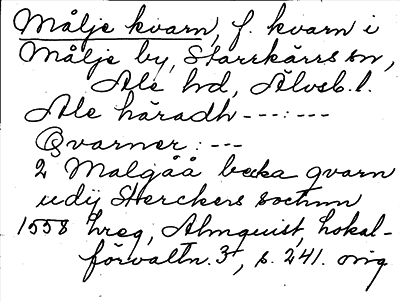 Målje kvarn, f. kvarn i
Målje by, Starrkärrs sn,
Ale hd, Älvsb. l.
Ale häradh ---:---
Qvarner: ---
2 Malgåå becka qvarn
udij Sterckers sochnn
1558 hreg, Almquist, Lokal-
förvaltn. 3, s. 241. orig.